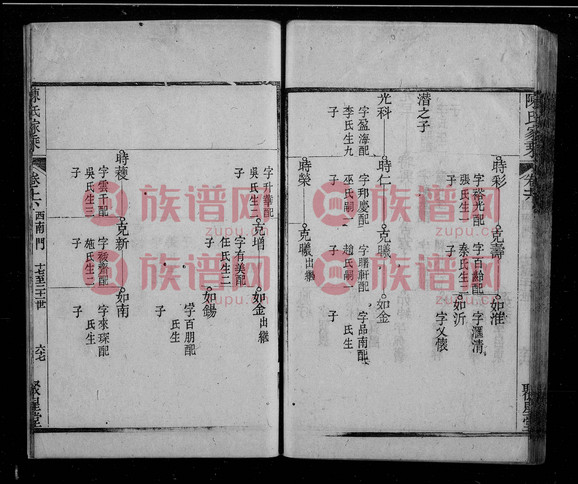 陳氏家乘
卷十六
潛之子
光科
字盈海配
李氏生九
子
時彩
字裕光配
張氏生二
子
時仁
字邦慶配
巫氏嗣一
子
時榮
克壽
字百齡配
秦氏生二
子
克曦
字曙軒配
趙氏嗣一
子
克曦出繼
如淮
字滙清
如沂
字又懷
如金
字品南配
氏生
子
聚星堂
字升譽配
吳氏生三
子
時
字雲千配
吳氏生三
子
克增
字有美配
任氏生二
子
克新
施氏生二
子
如金出繼
如錫
字百朋配
氏生
子
如南
字來琛配
氏生
子
陳氏家乘
卷十六
西南門
十七至二十一世
六七
聚星堂
族谱网
zupu.cn
族谱网
zupu.cn
族谱网
zupu.cn
族谱网
zupu.cn